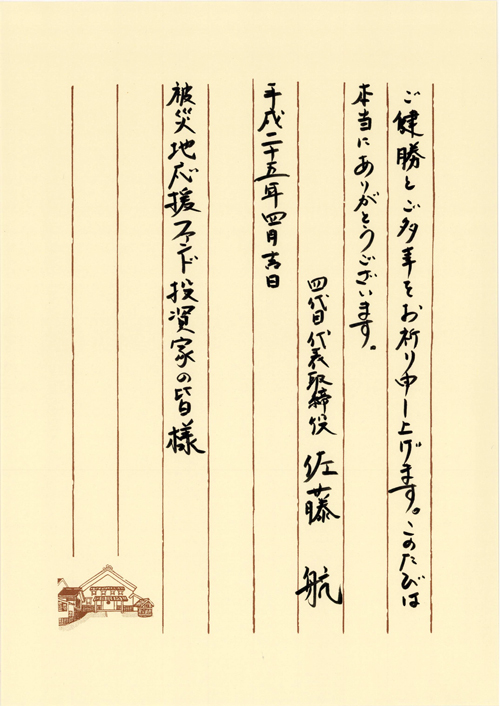 ご健勝とご多幸をお祈り申し上げます。このたびは
本当にありがとうございます。
四代目 代表取締役 佐藤 航
平成二十五年四月吉日
被災地応援ファンド投資家の皆様